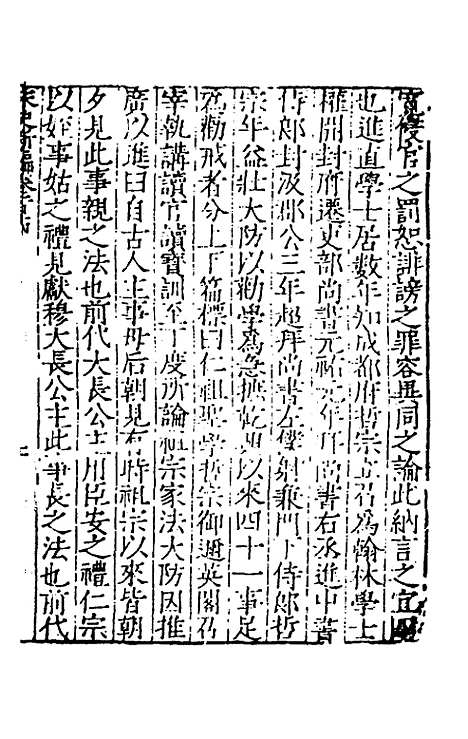 寬復官之罰恕誹謗之罪容異同之論此納言之宜
也進直學士居數年知成都府哲宗立召爲翰林學士
權開封府遷吏部尚書元祐元年拜尚書右丞進中書
侍郎封汲郡公三年超拜尚書左僕射兼門下侍郎哲
宗年益壯大防以勸學爲急摭乾興以來四十一事足
爲勸戒者分上下篇標曰仁祖聖學哲宗御邇英閣召
宰執講讀官讀寶訓至丁度所論祖宗家法大防因推
廣以進曰自古人主事母后朝見有時祖宗以來皆朝
夕見此事親之法也前代大長公主用臣妾之禮仁宗
以姪事姑之禮見獻穆大長公主此事長之法也前代